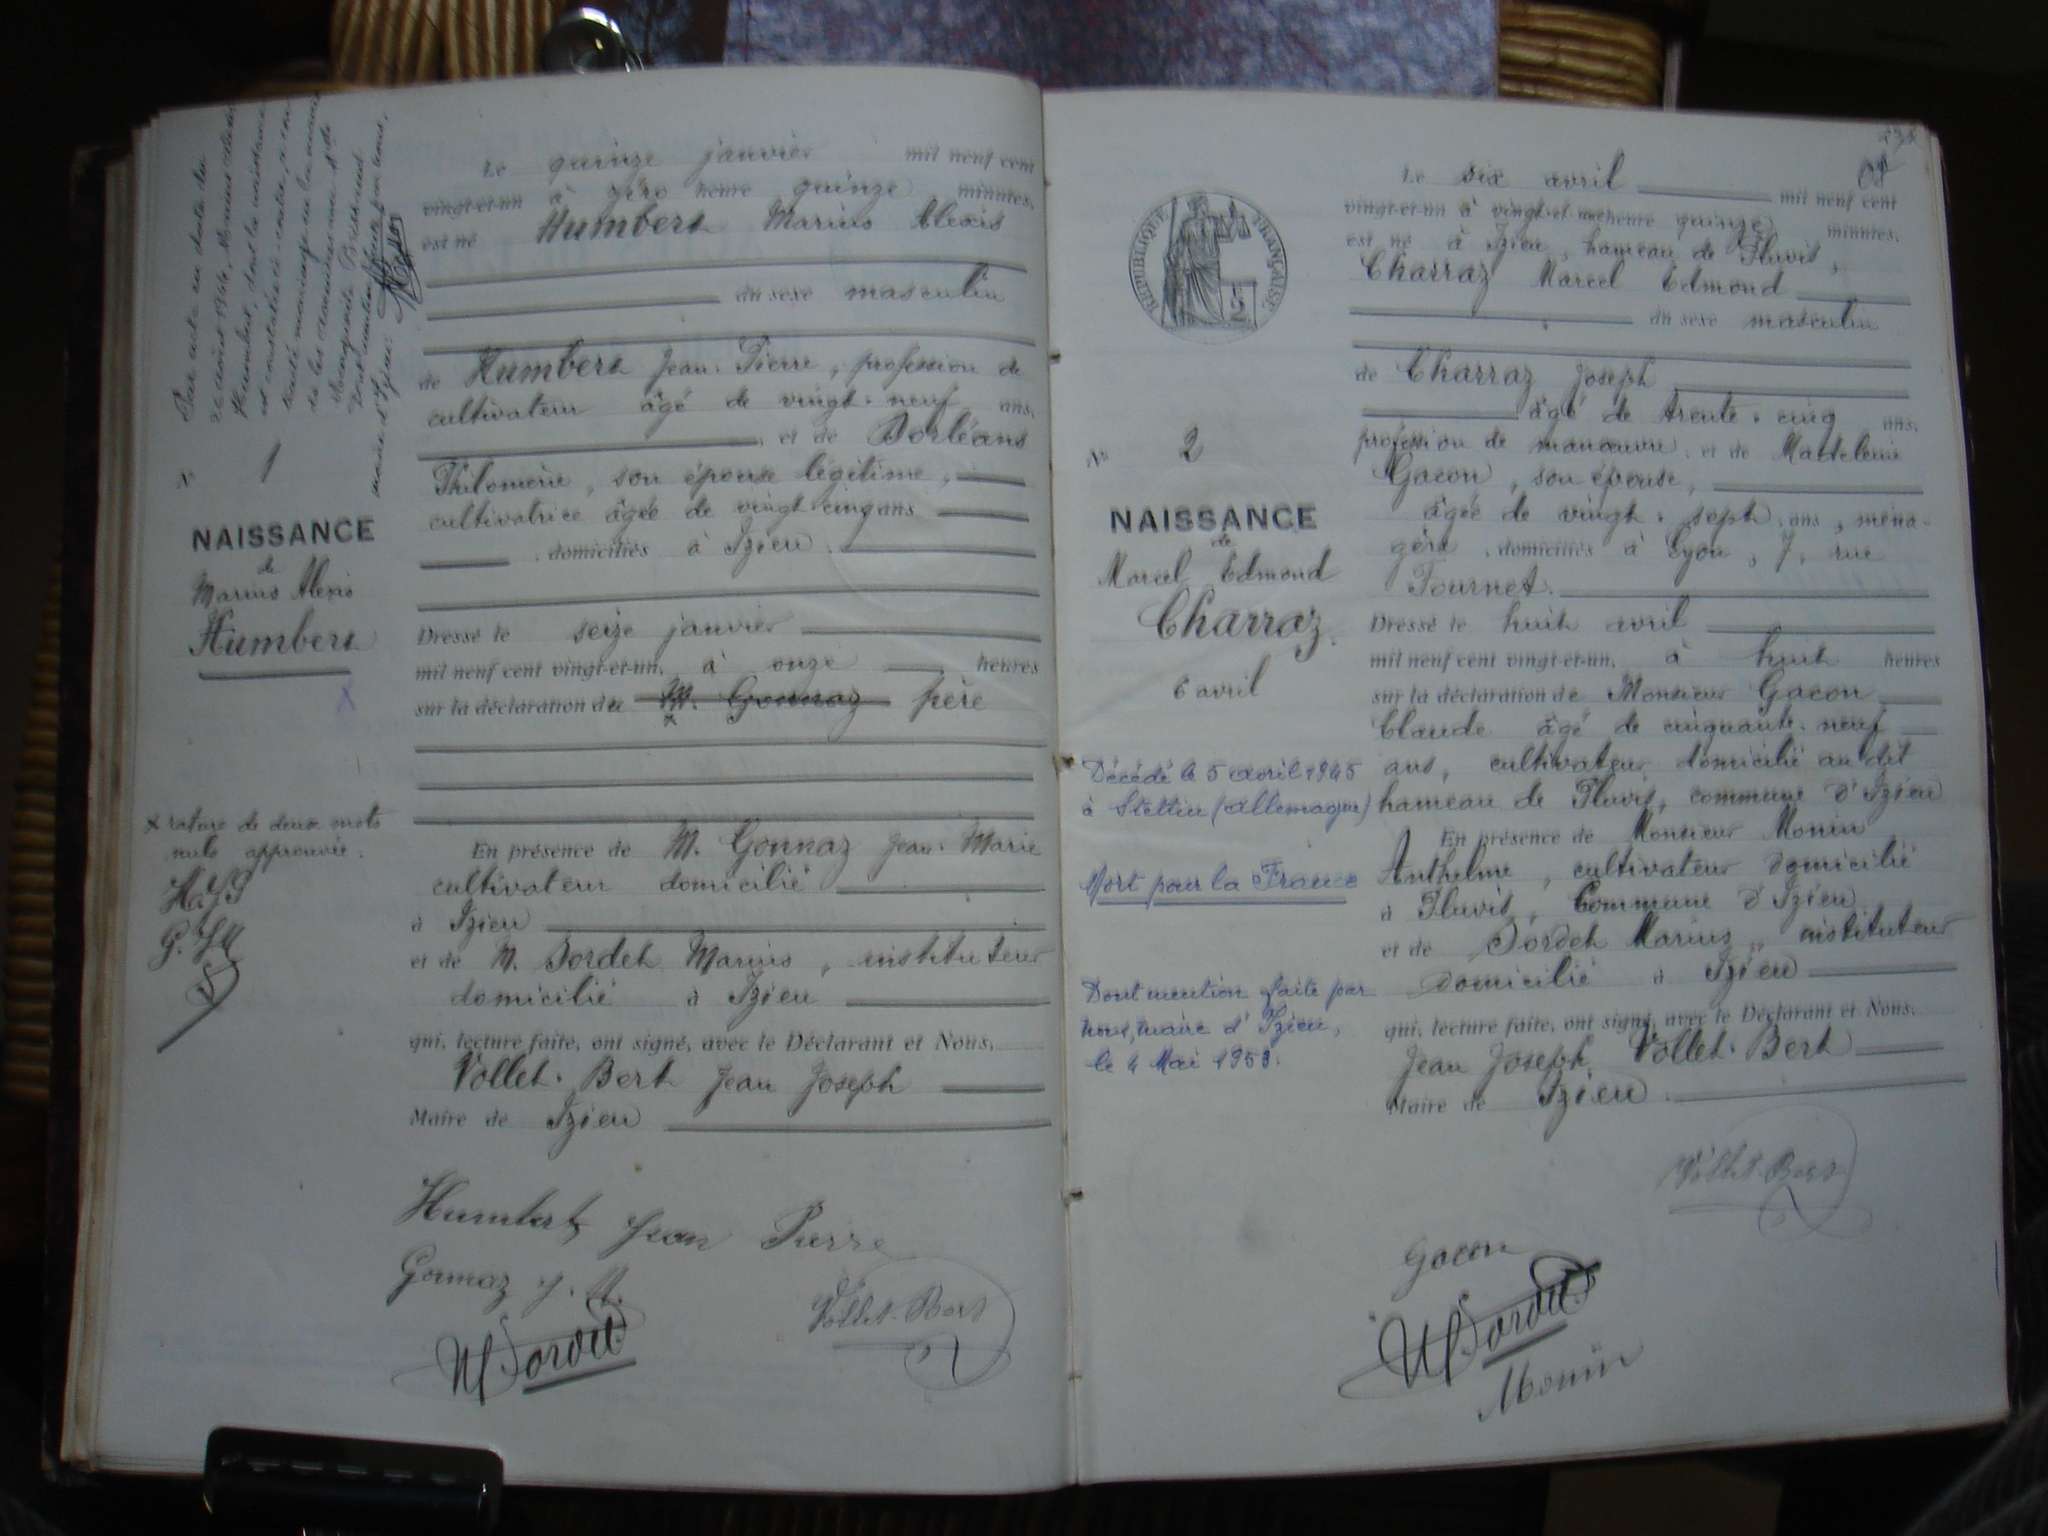 Par acte en date du
26 août 1944, Marius Alexis
Humbert, dont la naissance
est constatée ci-contre, a con
tracté mariage en la mairie
Marguerite
Dont mention faite par nous,
maire d'Izieu
N° 1
NAISSANCE
de
Marius Alexis
Humbert
X
x rature de deux mots
nuls approuvée.
Le quinze janvier mil neuf cent
vingt-et-un à zéro heure quinze minutes,
est né Humbert Marius Alexis
du sexe masculin
de Humbert Jean-Pierre, profession de
cultivateur âgé de vingt-neuf ans,
et de Dorléans
Philomène, son épouse légitime,
cultivatrice âgée de vingt-cinq ans
domiciliés à Izieu.
Dressé le seize janvier
mil neuf cent vingt-et-un, à onze heures
sur la déclaration du M. Gonnaz père
x
En présence de M. Gonnaz Jean-Marie
cultivateur domicilié
à Izieu
et de M. Dordet Marius, instituteur
domicilié à Izieu
qui, lecture faite, ont signé, avec le Déclarant et Nous.
Vollet-Bert Jean Joseph
Maire de Izieu
Humbert Jean Pierre
Gonnaz J. M.
Vollet-Bert
M Dordet
08
RÉPUBLIQUE FRANÇAISE
N° 2
NAISSANCE
de
Marcel Edmond
Charraz.
6 avril
Décédé le 5 avril 1945
à Stettin (Allemagne)
Mort pour la France
Dont mention faite par
nous, maire d'Izieu,
le 4 Mai 1953.
Le six avril mil neuf cent
vingt-et-un à vingt-et-une heure quinze minutes,
est né à Izieu, hameau de Pluvis,
Charraz Marcel Edmond
du sexe masculin
de Charraz Joseph
âgé de trente-cinq ans,
profession de manœuvre, et de Madeleine
Gacon, son épouse,
âgée de vingt-sept ans, ména-
gère, domiciliés à Lyon, 7, rue
Tournet.
Dressé le huit avril
mil neuf cent vingt-et-un, à huit heures
sur la déclaration de Monsieur Gacon
Claude âgé de cinquante-neuf
ans, cultivateur domicilié au dit
hameau de Pluvis, commune d'Izieu
En présence de Monsieur Monin
Anthelme, cultivateur domicilié
à Pluvis, Commune d'Izieu
et de Dordet Marius, instituteur
domicilié à Izieu
qui, lecture faite, ont signé, avec le Déclarant et Nous.
Jean Joseph Vollet-Bert
Maire de Izieu.
Vollet-Bert
Gacon
M Dordet
Monin